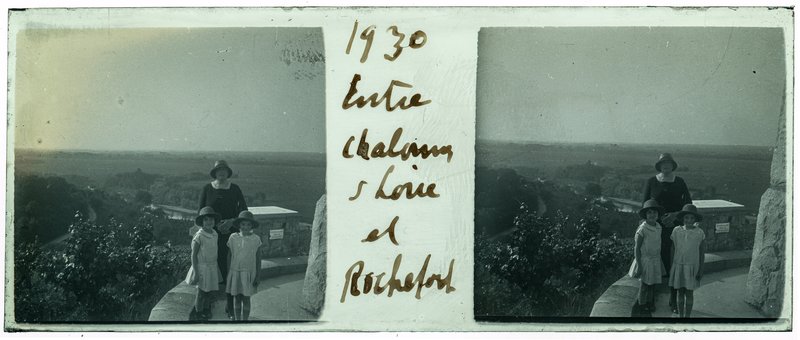 1930
Entre
chalonnes
s Loire
et
Rochefort